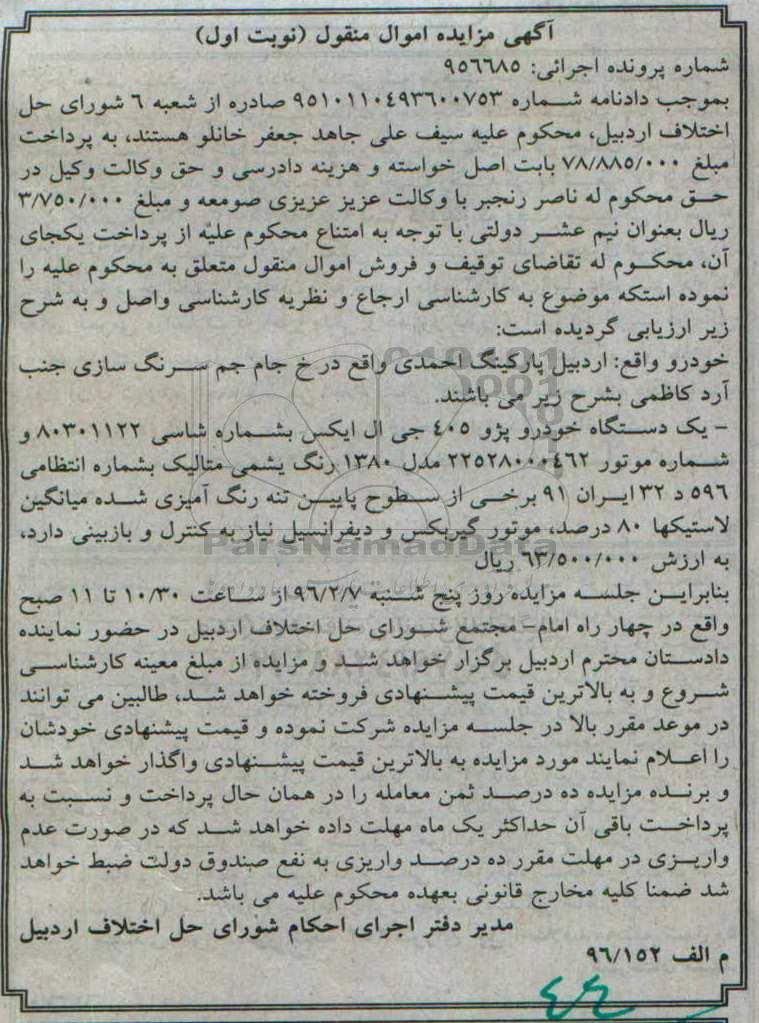 آگهی مزایده اموال منقول (نوبت اول)
شماره پرونده اجرائی: ۹۵۶۶۸۵
بموجب دادنامه شماره ۹۵۱۰۱۱۰٤۹۳٦۰۰۷۵۳ صادره از شعبه ٦ شورای حل
اختلاف اردبیل، محکوم علیه سیف علی جاهد جعفر خانلو هستند، به پرداخت
مبلغ ۷۸/۸۸۵/۰۰۰ بابت اصل خواسته و هزینه دادرسی و حق وکالت وکیل در
حق محکوم له ناصر رنجبر با وکالت عزیز عزیزی صومعه و مبلغ ۳/۷۵۰/۰۰۰
ریال بعنوان نیم عشر دولتی با توجه به امتناع محکوم علیه از پرداخت یکجای
آن، محکوم له تقاضای توقیف و فروش اموال منقول متعلق به محکوم علیه را
نموده استکه موضوع به کارشناسی ارجاع و نظریه کارشناسی واصل و به شرح
زیر ارزیابی گردیده است:
خودرو واقع: اردبیل پارکینگ احمدی واقع در خ جام جم سرنگ سازی جنب
آرد کاظمی بشرح زیر می باشند.
- یک دستگاه خودرو پژو ٤۰۵ جی ال ایکس بشماره شاسی ۸۰۳۰۱۱۲۲ و
شماره موتور ۲۲۵۲۸۰۰۰٤٦۲ مدل ۱۳۸۰ رنگ یشمی متالیک بشماره انتظامی
۵۹٦ د ۳۲ ایران ۹۱ برخی از سطوح پایین تنه رنگ آمیزی شده میانگین
لاستیکها ۸۰ درصد، موتور گیربکس و دیفرانسیل نیاز به کنترل و بازبینی دارد،
به ارزش ٦۳/۵۰۰/۰۰۰ ریال
بنابراین جلسه مزایده روز پنج شنبه ۹٦/۲/۷ از ساعت ۱۰/۳۰ تا ۱۱ صبح
واقع در چهار راه امام- مجتمع شورای حل اختلاف اردبیل در حضور نماینده
دادستان محترم اردبیل برگزار خواهد شد و مزایده از مبلغ معینه کارشناسی
شروع و به بالاترین قیمت پیشنهادی فروخته خواهد شد، طالبین می توانند
در موعد مقرر بالا در جلسه مزایده شرکت نموده و قیمت پیشنهادی خودشان
را اعلام نمایند مورد مزایده به بالاترین قیمت پیشنهادی واگذار خواهد شد
و برنده مزایده ده درصد ثمن معامله را در همان حال پرداخت و نسبت به
پرداخت باقی آن حداکثر یک ماه مهلت داده خواهد شد که در صورت عدم
واریزی در مهلت مقرر ده درصد واریزی به نفع صندوق دولت ضبط خواهد
شد ضمنا کلیه مخارج قانونی بعهده محکوم علیه می باشد.
مدیر دفتر اجرای احکام شورای حل اختلاف اردبیل
م الف ۹٦/۱۵۲
ParsNamadData
٤٤